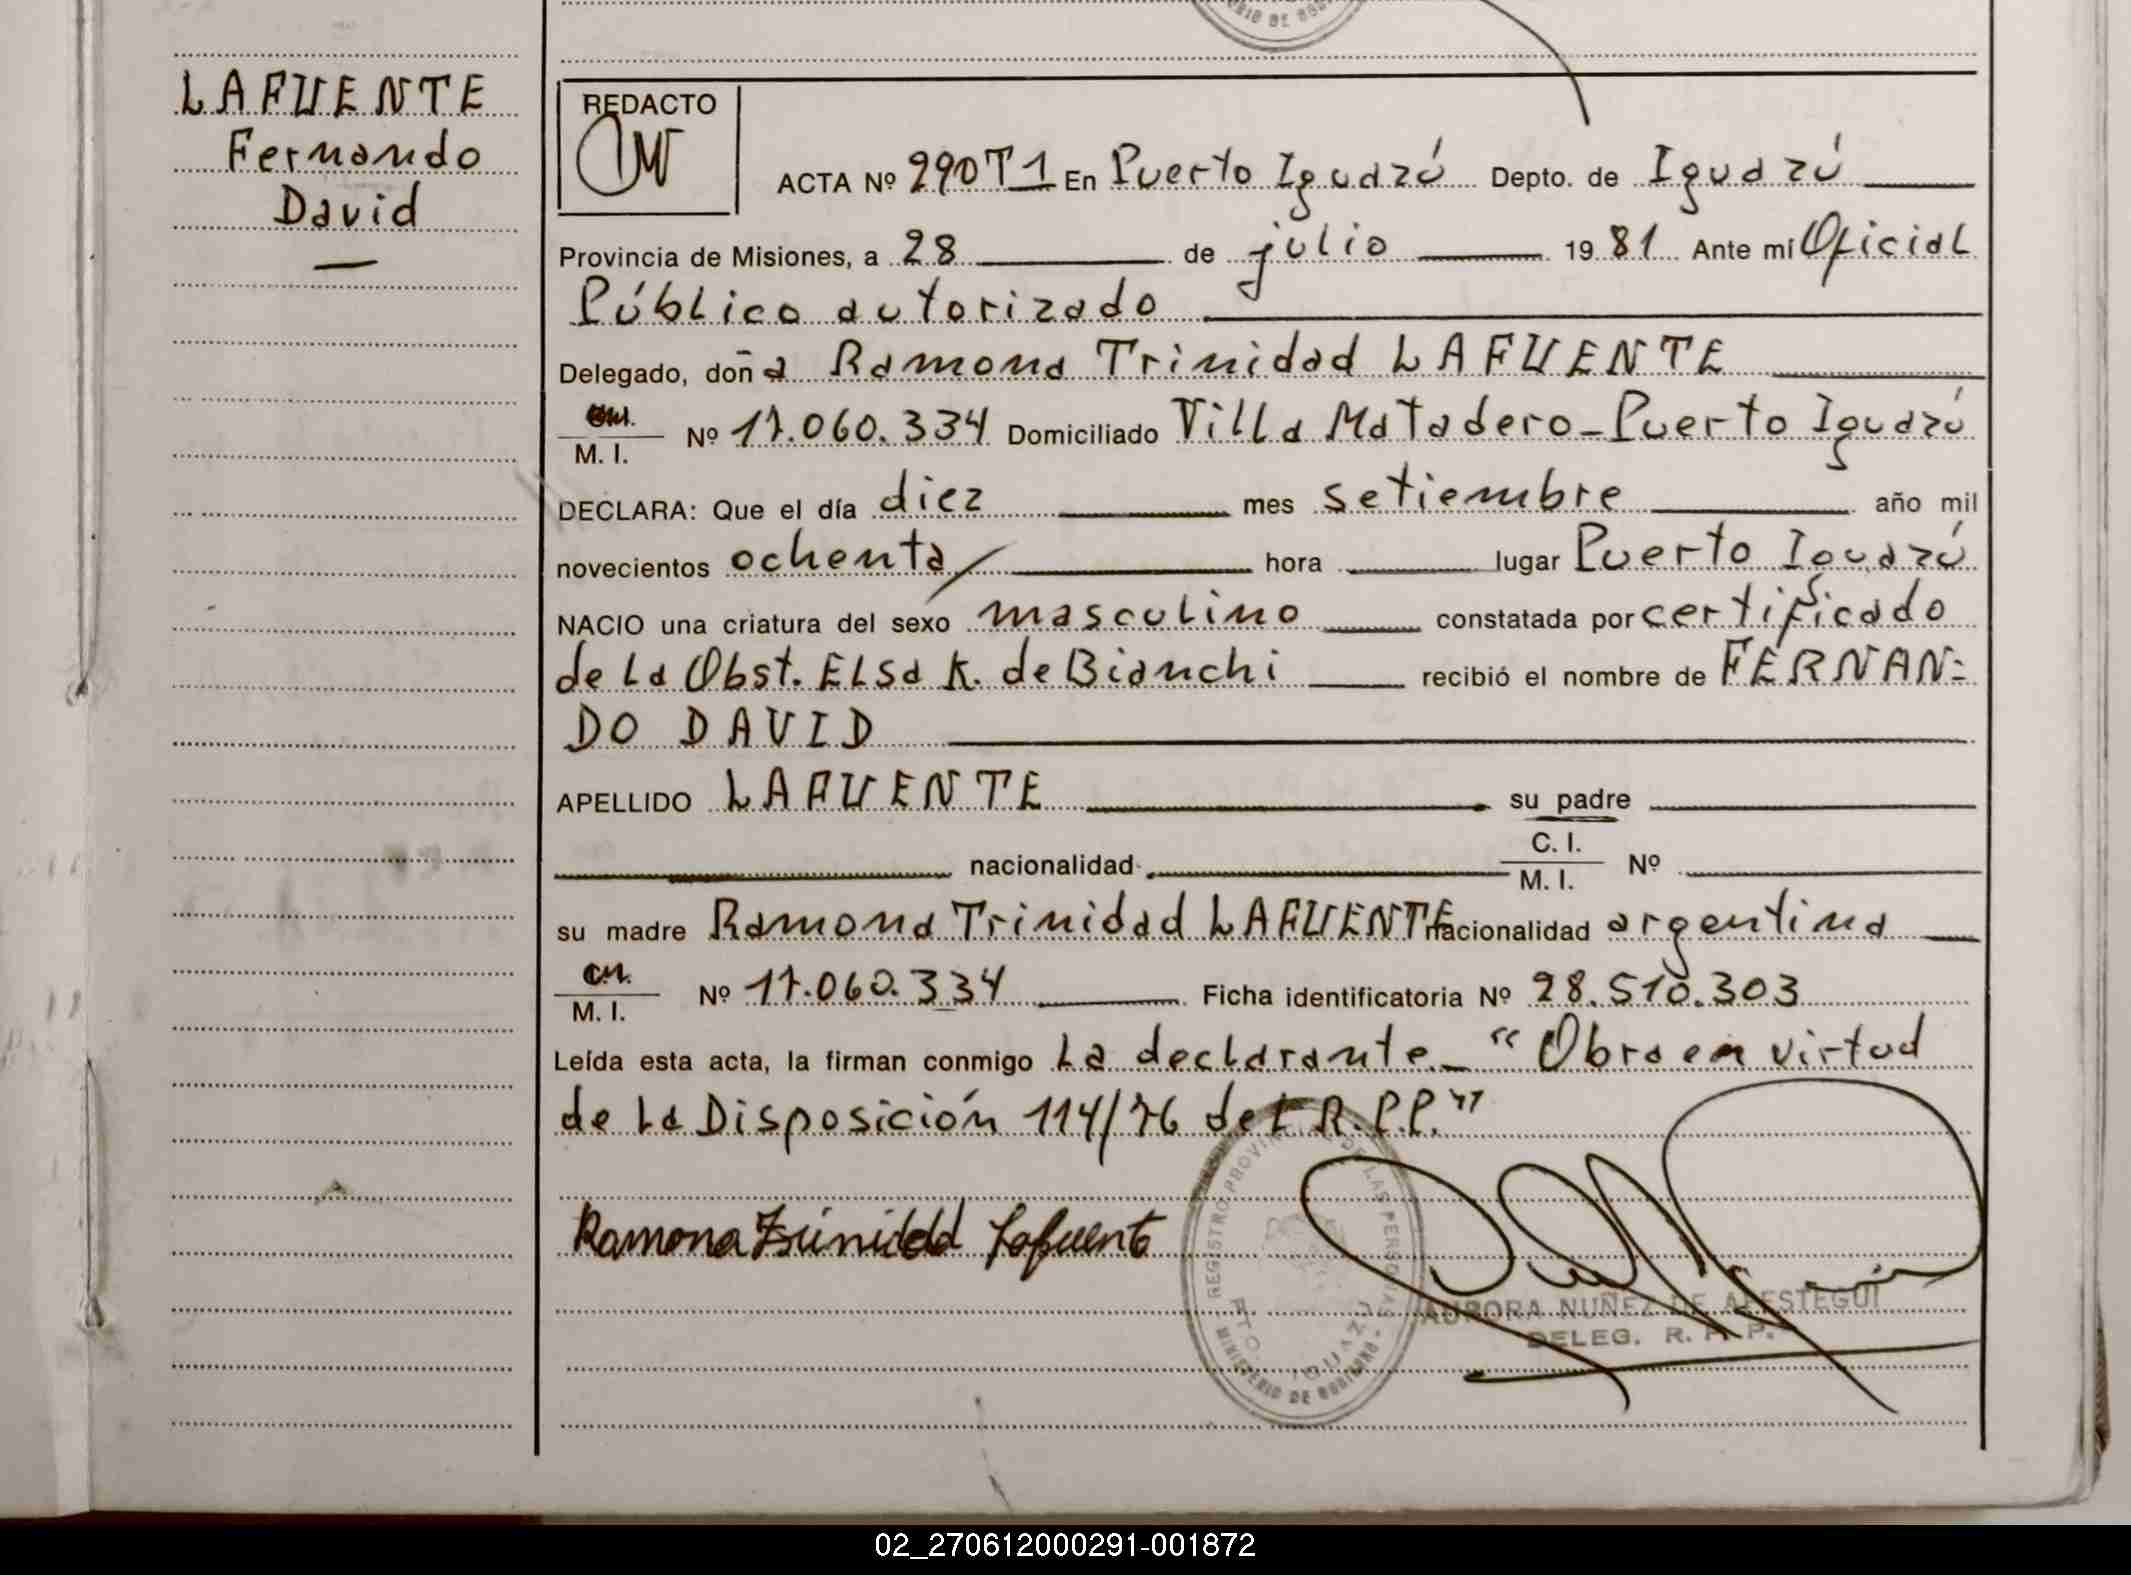 LAFUENTE
Fernando
David
REDACTO
ACTA Nº 290 T1 En Puerto Iguazú Depto. de Iguazú
Provincia de Misiones, a 28 de julio 1981 Ante mí Oficial
Público autorizado
Delegado, doña Ramona Trinidad LAFUENTE
M. I. Nº 17.060.334 Domiciliado Villa Matadero - Puerto Iguazú
DECLARA: Que el día diez mes setiembre año mil
novecientos ochenta/ hora lugar Puerto Iguazú
NACIO una criatura del sexo masculino constatada por certificado
de la Obst. Elsa K. de Bianchi recibió el nombre de FERNAN=
DO DAVID
APELLIDO LAFUENTE su padre
nacionalidad C. I. M. I. Nº
su madre Ramona Trinidad LAFUENTE nacionalidad argentina
M. I. Nº 17.060.334 Ficha identificatoria Nº 28.510.303
Leída esta acta, la firman conmigo la declarante._ "Obra en virtud
de la Disposición 114/76 del R.P.P."
Ramona Trinidad Lafuente
REGISTRO PROVINCIAL DE LAS PERSONAS
PTO. IGUAZU
MINISTERIO DE GOBIERNO
AURORA NUÑEZ DE
DELEG. R. P. P.
02_270612000291-001872